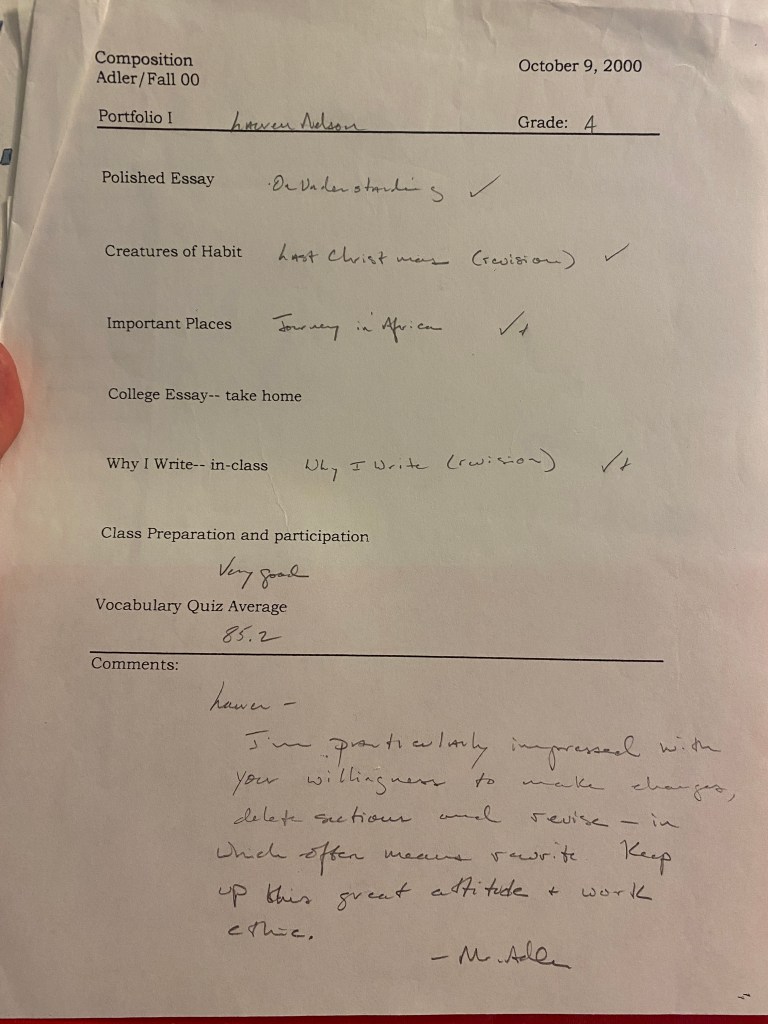 Composition
October 9, 2000
Adler/Fall 00
Portfolio I Lauren Nelson Grade: A
Polished Essay On Understanding ✓
Creatures of Habit Last Christmas (revision) ✓
Important Places Journey in Africa ✓+
College Essay-- take home
Why I Write-- in-class Why I Write (revision) ✓+
Class Preparation and participation
Very good
Vocabulary Quiz Average
85.2
Comments:
Lauren -
I'm particularly impressed with
your willingness to make changes,
delete sections and revise - in
which often means rewrite Keep
up this great attitude + work
ethic.
- Mr. Adler